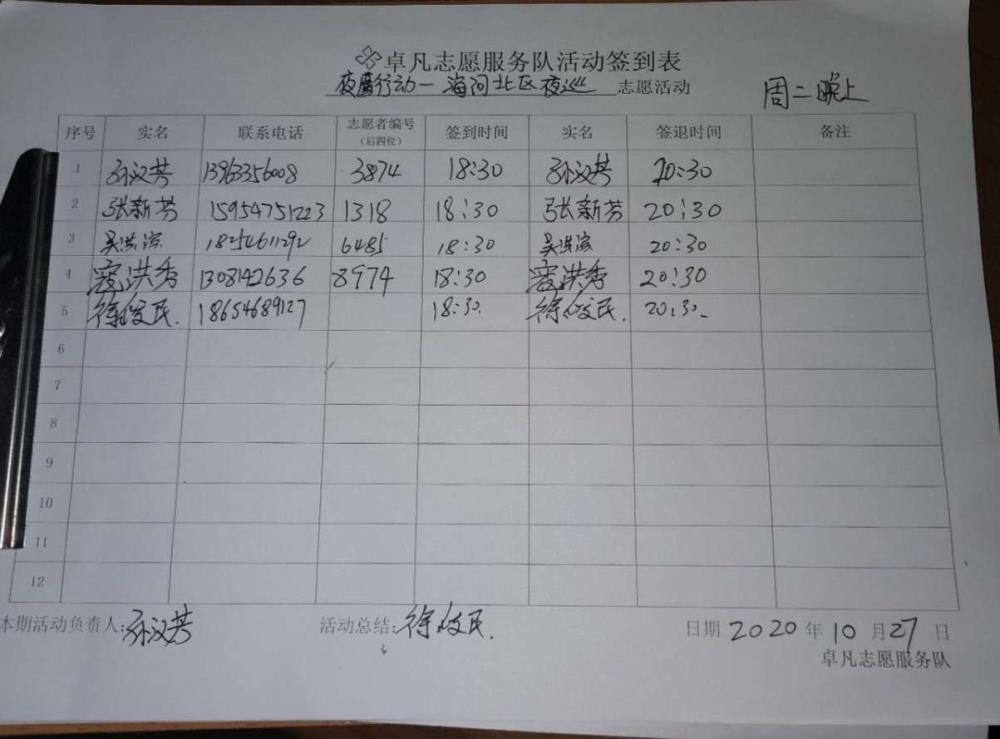 卓凡志愿服务队活动签到表
夜鹰行动一海河北区夜巡 志愿活动 周二晚上
序号 实名 联系电话 志愿者编号(后四位) 签到时间 实名 签退时间 备注
1 孙汉芳 13963356008 3874 18:30 孙汉芳 20:30
2 张新芳 15954751223 1318 18:30 张新芳 20:30
3 吴洪滨 18254611292 6485 18:30 吴洪滨 20:30
4 寇洪秀 1308142636 8974 18:30 寇洪秀 20:30
5 徐俊民. 18654689127 18:30. 徐俊民. 20:30.
6
7
8
9
10
11
12
本期活动负责人:孙汉芳 活动总结:徐俊民. 日期 2020 年 10 月 27 日
卓凡志愿服务队